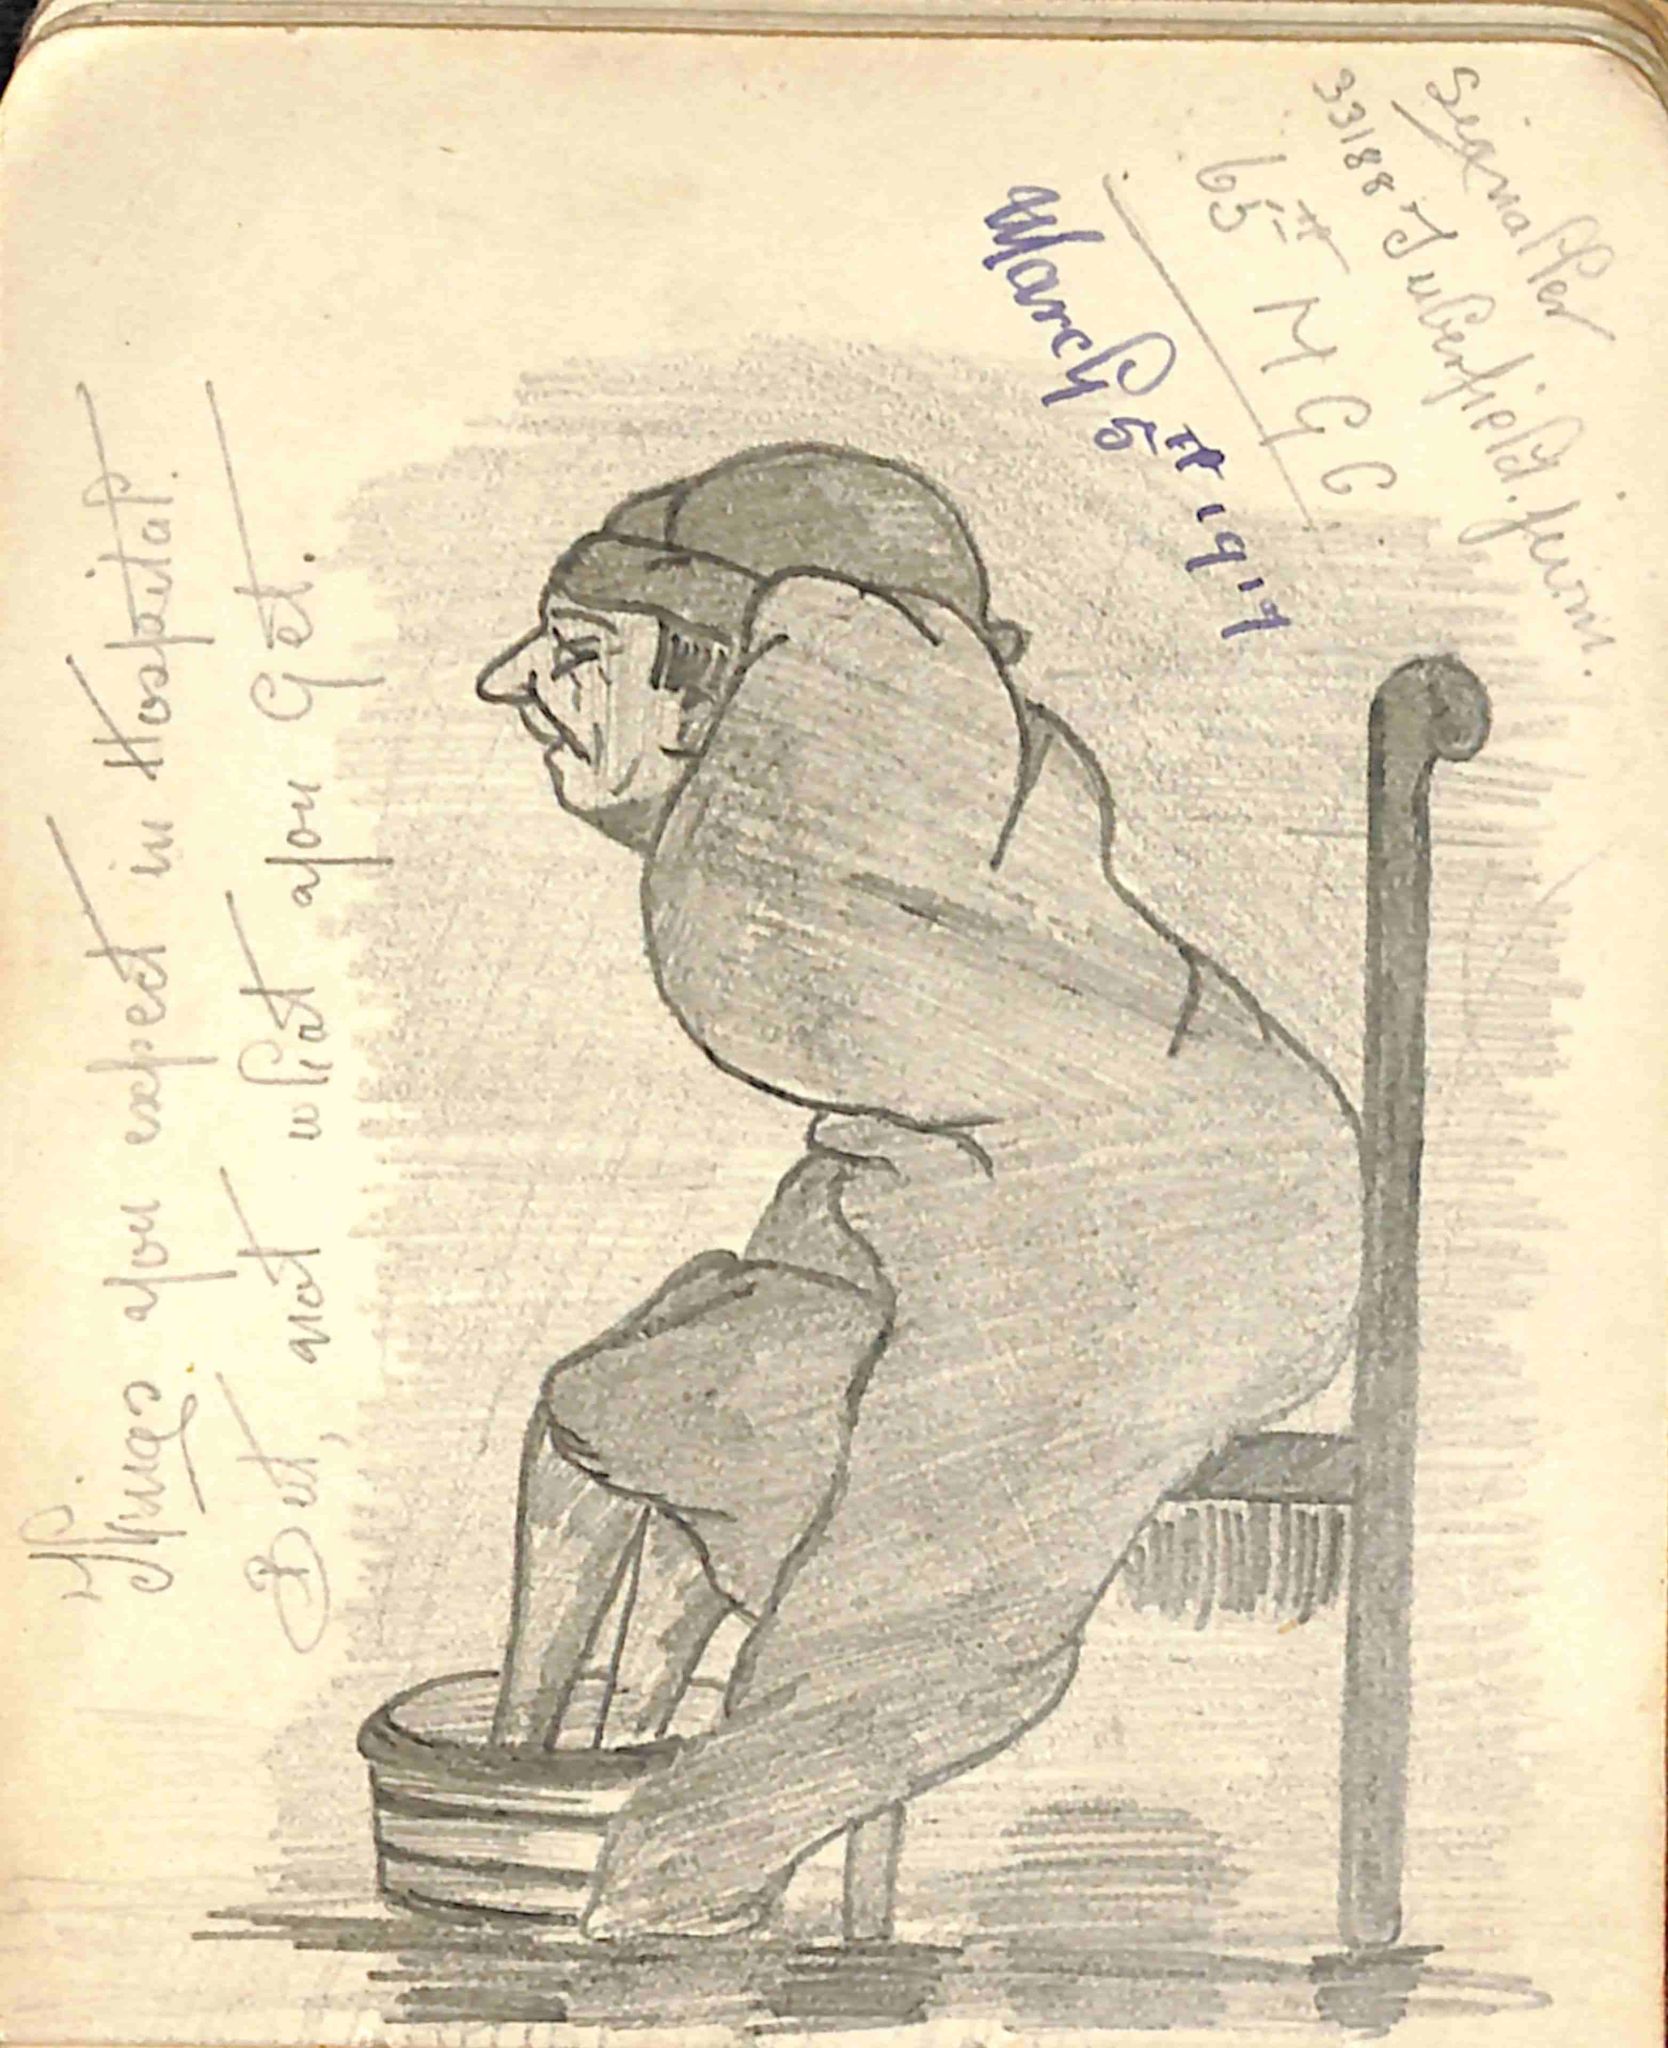 Things you expect in Hospital.
But, not what you Get.
Signaller
33188 Tuberfield. Jnr.
65th M G C
March 5th 1917